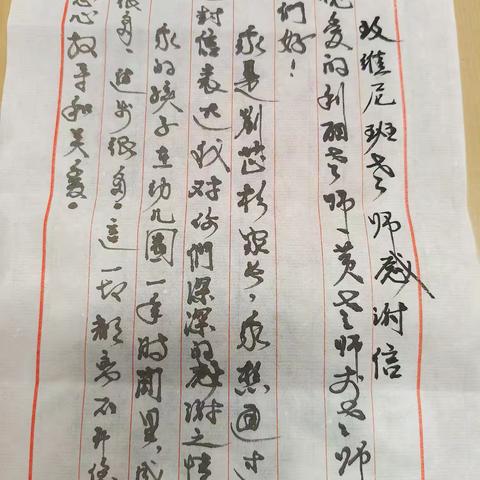 致维尼班老师感谢信
爱的刘丽老师、黄老师、老师
们好!
我是刘芷杉家长,我想通过
封信表达我对你們深深的感谢之情
我的孩子在幼儿園一年时间里,成
很多、进步很多、這一切都离不开您
心教导和关爱。